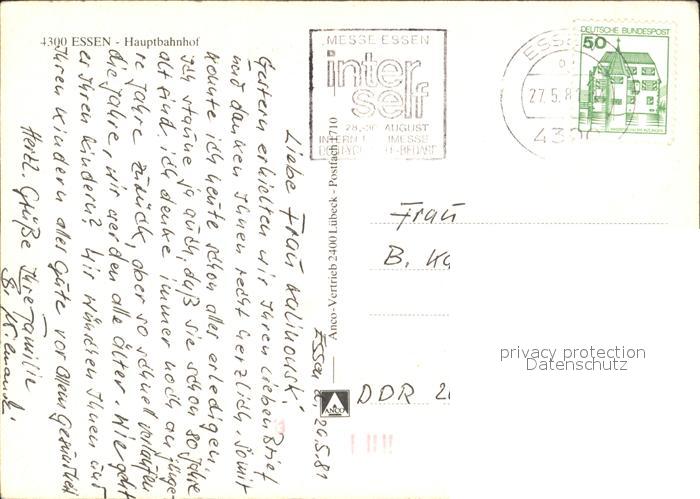 4300 ESSEN - Hauptbahnhof
MESSE ESSEN
inter
self
AUGUST
DEUTSCHE BUNDESPOST
50
ESSE
27.5.8
43
Anco-Vertrieb 2400 Lübeck - Postfach 1710
ANCO
Essen d. 26.5.81
Liebe Frau Kalinowski!
Gestern erhielten wir Ihren lieben Brief
und danken Ihnen recht herzlich. Somit
konnte ich heute schon alles erledigen.
Ich staune ja auch, daß Sie schon 80 Jahre
alt sind. Ich denke immer noch an jünge-
re Jahre zurück, aber so schnell verlaufen
die Jahre, wir werden alle älter. Wie geht
es Ihren Kindern? Wir wünschen Ihnen und
Ihren Kindern alles Gute vor allem Gesundheit
Herzl. Grüße Ihre Familie
Frau
B. Ka
DDR
privacy protection
Datenschutz